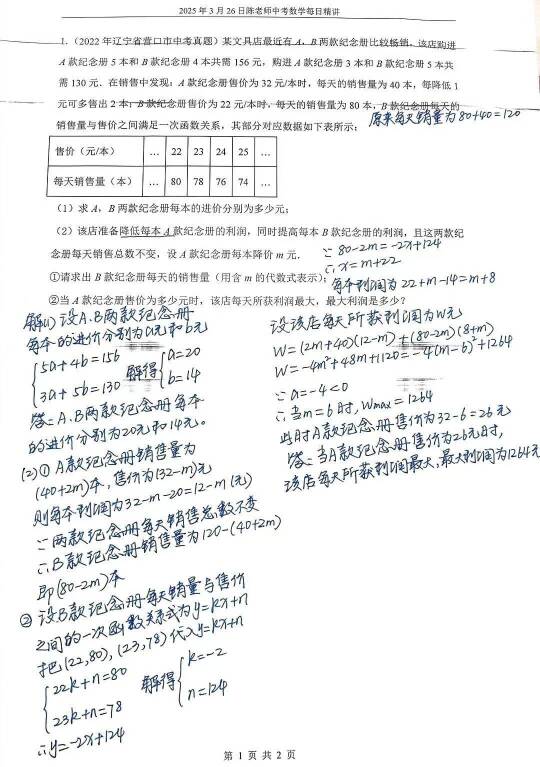 2025 年 3 月 26 日陈老师中考数学每日精讲
1.（2022 年辽宁省营口市中考真题）某文具店最近有 A，B 两款纪念册比较畅销，该店购进
A 款纪念册 5 本和 B 款纪念册 4 本共需 156 元，购进 A 款纪念册 3 本和 B 款纪念册 5 本共
需 130 元．在销售中发现：A 款纪念册售价为 32 元/本时，每天的销售量为 40 本，每降低 1
元可多售出 2 本；B 款纪念册售价为 22 元/本时，每天的销售量为 80 本，B 款纪念册每天的
销售量与售价之间满足一次函数关系，其部分对应数据如下表所示：
原来每天销量为80+40=120
售价（元/本） … 22 23 24 25 …
每天销售量（本） … 80 78 76 74 …
（1）求 A，B 两款纪念册每本的进价分别为多少元；
（2）该店准备降低每本 A 款纪念册的利润，同时提高每本 B 款纪念册的利润，且这两款纪
念册每天销售总数不变，设 A 款纪念册每本降价 m 元．
∵80-2m=-2x+124
∴x=m+22
①请求出 B 款纪念册每天的销售量（用含 m 的代数式表示）；
每本利润为22+m-14=m+8
②当 A 款纪念册售价为多少元时，该店每天所获利润最大，最大利润是多少？
解(1)设A.B两款纪念册
每本的进价分别为a元和b元
{5a+4b=156
3a+5b=130
解得{a=20
b=14
答：A.B两款纪念册每本
的进价分别为20元和14元。
(2)① A款纪念册销售量为
(40+2m)本，售价为(32-m)元
则每本利润为32-m-20=12-m(元)
∵两款纪念册每天销售总数不变
∴B款纪念册销售量为120-(40+2m)
即(80-2m)本
② 设B款纪念册每天销量与售价
之间的一次函数关系式为y=kx+n
把(22,80),(23,78)代入y=kx+n
{22k+n=80
23k+n=78
解得{k=-2
n=124
∴y=-2x+124
设该店每天所获利润为W元
W=(2m+40)(12-m)+(80-2m)(8+m)
W=-4m²+48m+1120=-4(m-6)²+1264
∵a=-4<0
∴当m=6时,Wmax=1264
此时A款纪念册售价为32-6=26元
答：当A款纪念册售价为26元时,
该店每天所获利润最大,最大利润为1264元
第 1 页 共 2 页